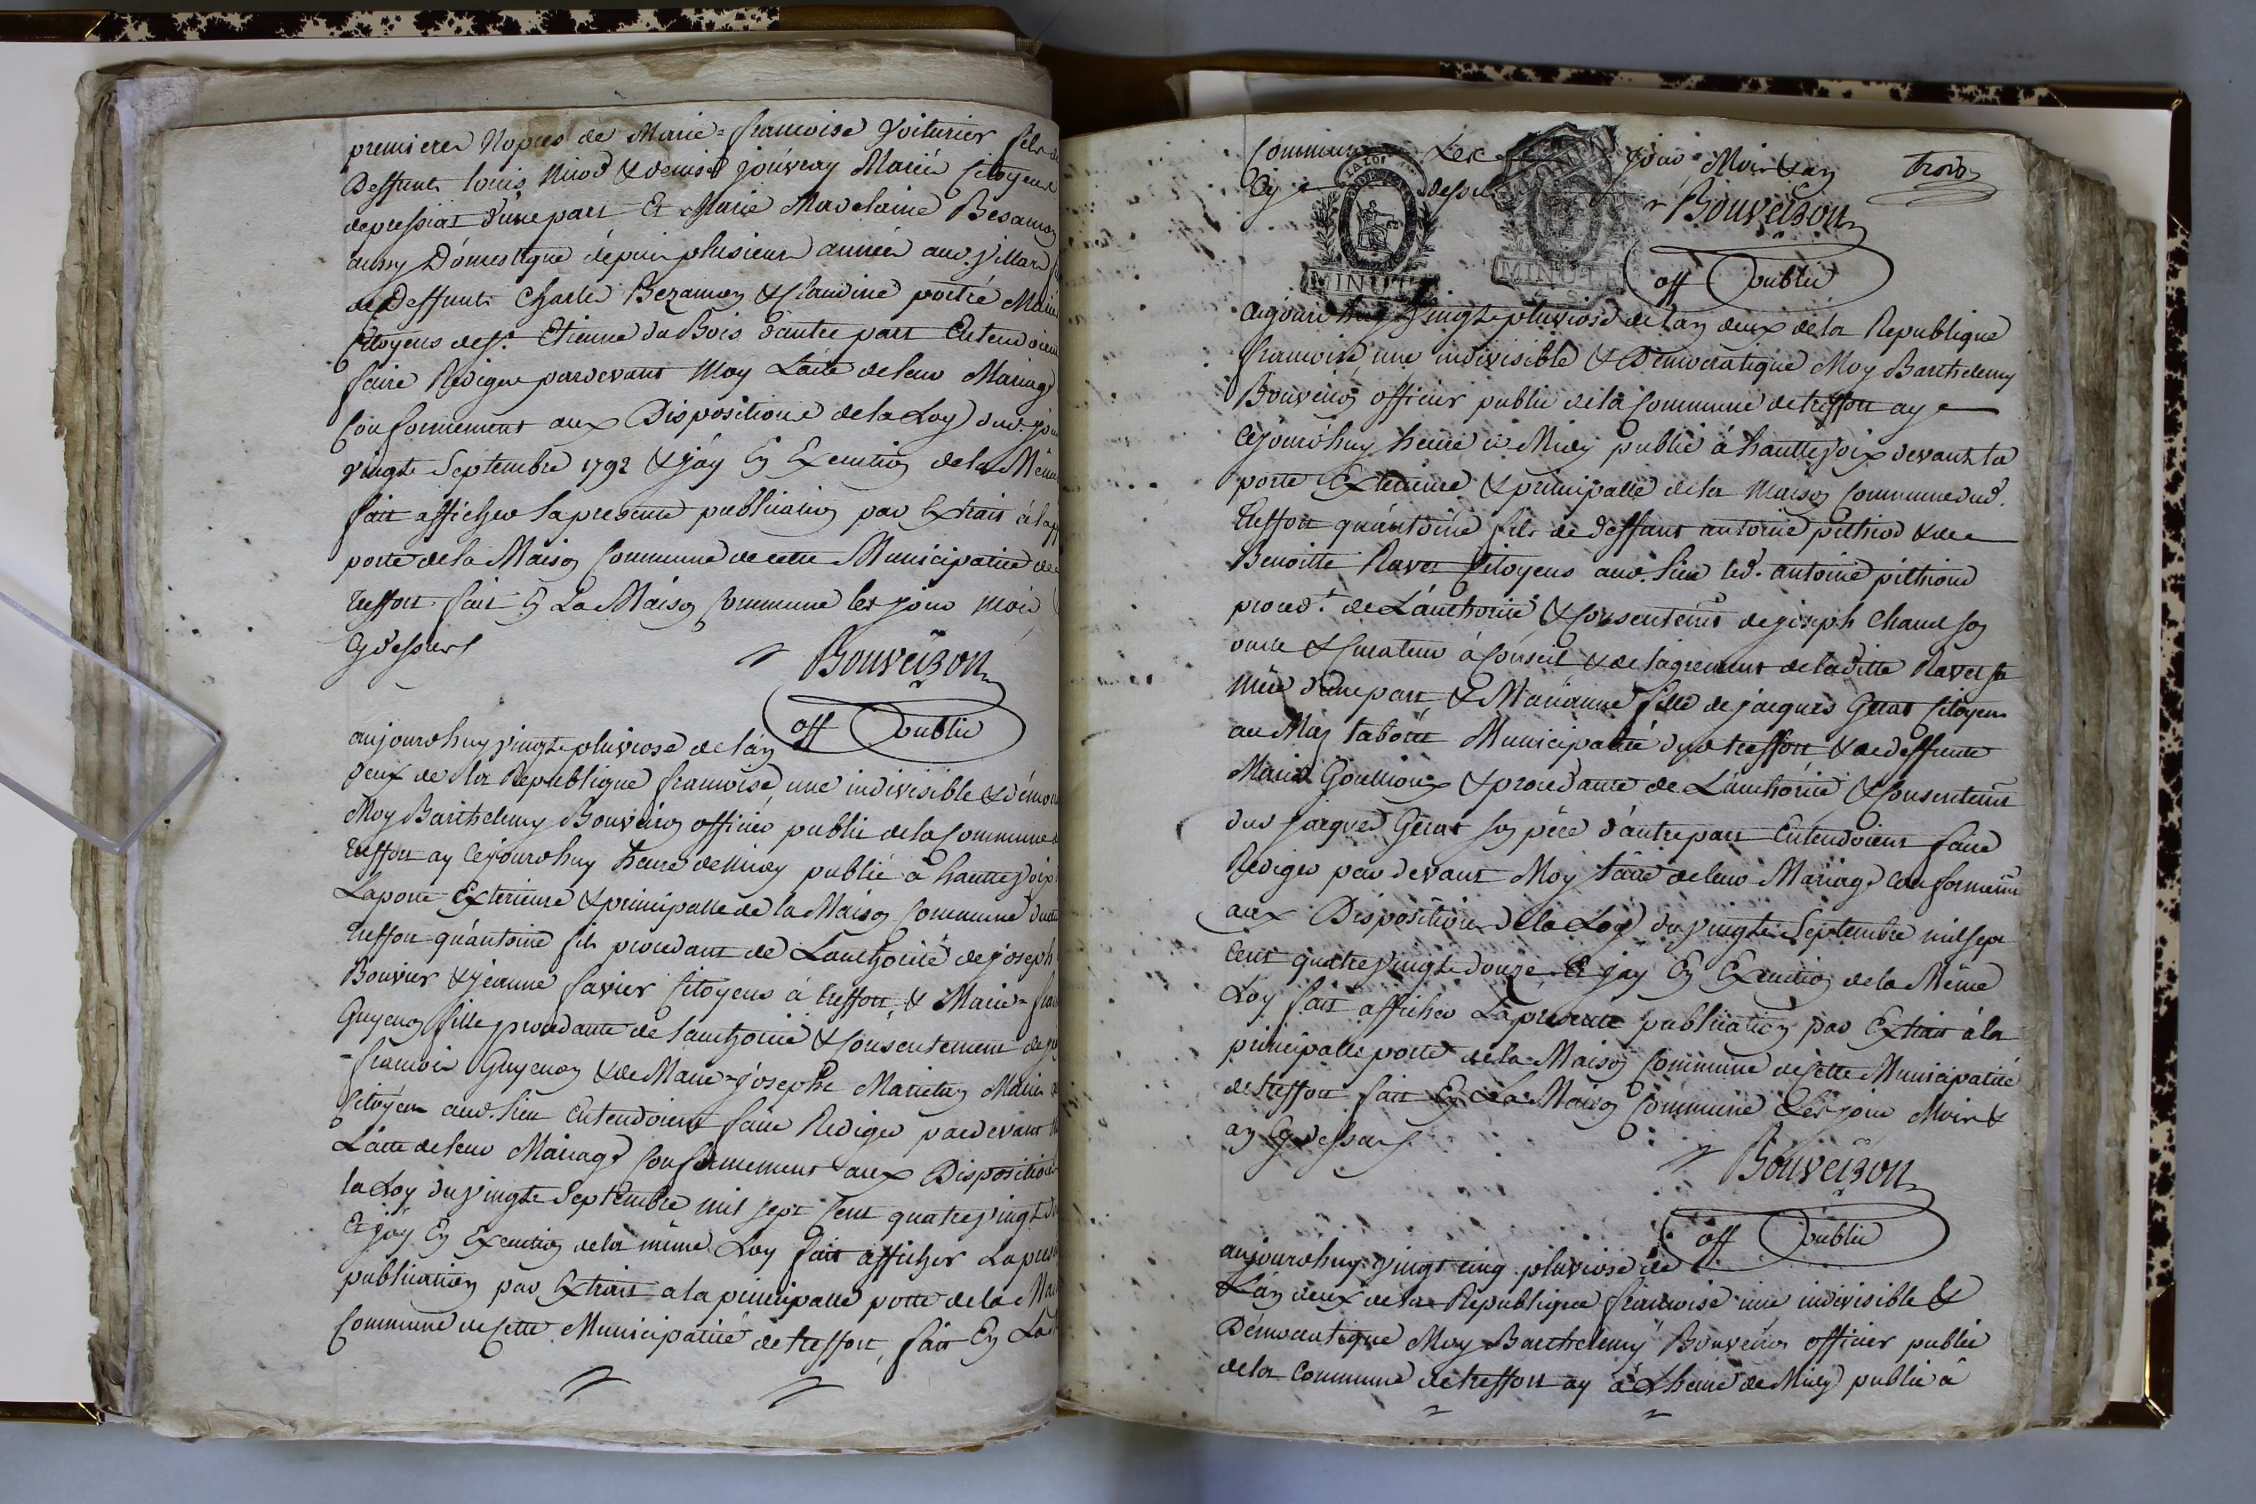 premieres Nopces de Marie=francoise Voiturier fils de
Deffunts louis Nicod & denise jouvray Mariés Citoyens
depressiat d'une part Et Marie Madelaine Besamon
aussy Domestique dépuis plusieurs années aud. Villard
de Deffunts Charles Bezamon & Claudine portié Mariés
Citoyens de st. Etienne du Bois d'autre part Entendoient
faire Rediger pardevant Moy L'acte de leur Mariage
Conformement aux Dispositions de la Loy du
vingt Septembre 1792 & j'ay En Execution de la Même
fait afficher la presente publication par Extrait à la
porte de la Maison Commune de cette Municipalité de
treffort fait En La Maison Commune les jour mois
Cy dessus
Bouveiron
off public
aujourdhuy vingt pluviose de l'an
deux de la Republique francoise, une indivisible & démo
Moy Barthelemy Bouveiron officier public de la Commune
treffort ay Cejourdhuy heure de midy publié à hautte voix
La porte Exterieure & principalle de la Maison Commune dud
treffort qu'antoine fils procedant de L'authorité de joseph
Bouvier & jeanne favier Citoyens à treffort, & Marie=fran
Guyenon fille procedante de l'authorité & Consentement de
=francois Guyenon & de Marie=josephe Mariés
Citoyens aud. lieu Entendoient faire Rediger pardevant
L'acte de leur Mariage Conformement aux Dispositions
la Loy du vingt Septembre mil sept Cent quatre vingt
Et j'ay En Execution de la même Loy fait afficher La pres
publication par Extrait a la principalle porte de la Mai
Commune de Cette Municipalité de treffort, fait En La
Commune Les jour, Mois & an
Cy dessus
trois
Bouveiron
off public
LA LOI
MINUTE
MINUTE
aujourdhuy vingt pluviose de l'an deux de la Republique
francoise, une indivisible & Democratique Moy Barthelemy
Bouveiron officier public de la Commune de treffort ay
Cejourdhuy heure de Midy publié à hautte voix devant la
porte Exterieure & principalle de la Maison Commune dud.
treffort qu'antoine fils de deffunt antoine pithiod & de
Benoitte Ravet Citoyens aud. lieu led. antoine pithiod
proced.t de L'authorité & Consentemt de joseph Chanel son
oncle & Curateur à Conseil & de l'agrement de laditte Ravet sa
Mère d'une part, & Marianne fille de jacques Gerat Citoyen
au Mas Municipalité dud treffort & de deffunte
Marie Goullioux & procedante de L'authorité & Consentemt
dud jacques Gerat son père d'autre part Entendoient faire
Rediger par devant Moy l'acte de leur Mariage Conformement
aux Dispositions de la Loy du vingt Septembre mil sept
Cent quatre vingt douze Et j'ay En Execution de la Même
Loy fait afficher La presente publication par Extrait à la
principalle porte de la Maison Commune de Cette Municipalité
de treffort fait En La Maison Commune Les jour Mois &
an Cy dessus
Bouveiron
off public
aujourdhuy vingt cinq pluviose de
L'an deux de la Republique francoise une indivisible &
Democratique Moy Barthelemy Bouveiron officier public
de la Commune de treffort ay à L'heure de Midy publié à